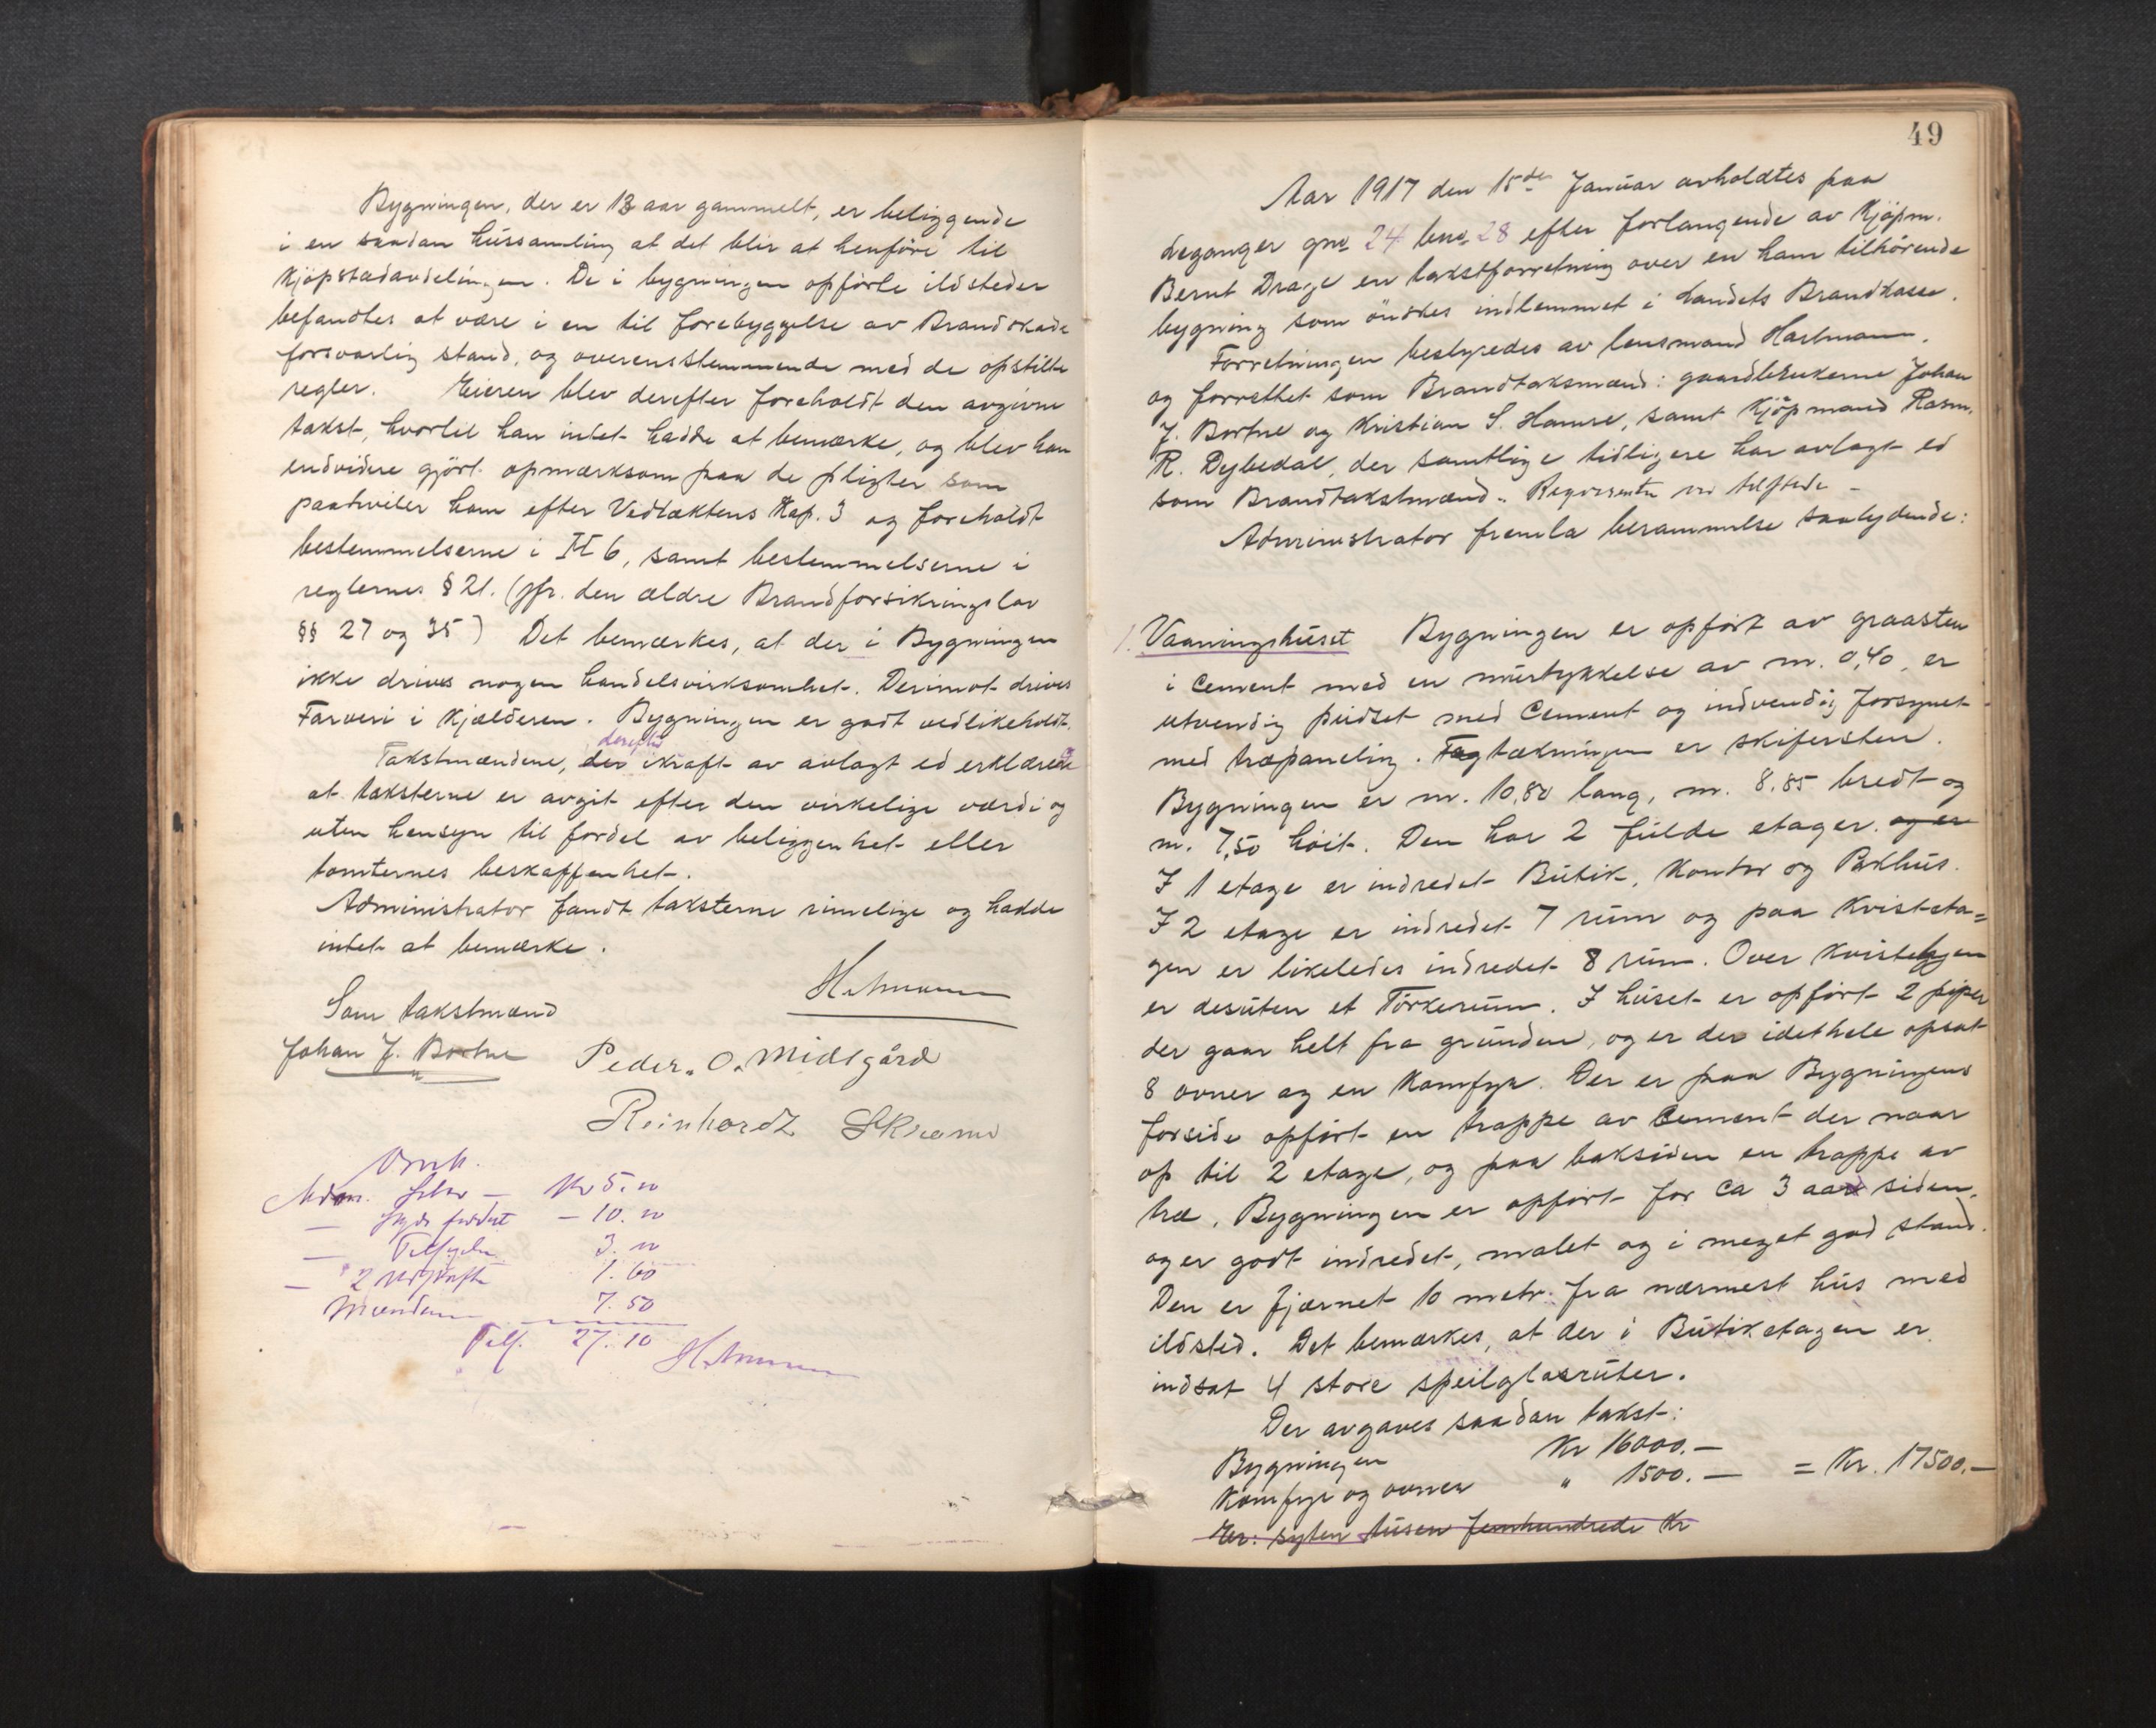 Bygningen, der er 13 aar gammelt, er beliggende
i en saadan hussamling at det blir at henføre til
Kjøpstadavdelingen. De i bygningen opførte ildsteder
befandtes at være i en til forebyggelse av Brandskade
forsvarlig stand, og overensstemmende med de opstilte
regler. Eieren blev derefter foreholdt den avgivne
takst, hvortil han intet hadde at bemærke, og blev han
endvidere gjort opmærksom paa de pligter som
paahviler ham efter Vedtæktens Kap. 3 og foreholdt
bestemmelserne i 6, samt bestemmelserne i
reglernes § 21. (jfr. den ældre Brandforsikringslov
§§ 27 og 35) Det bemærkes, at der i Bygningen
ikke drives nogen handelsvirksomhet. Derimot drives
Farveri i Kjælderen. Bygningen er godt vedlikeholdt.
Takstmændene, der ikraft av avlagt ed erklærer
at taksterne er avgit efter den virkelige værdi og
uten hensyn til fordel av beliggenhet eller
tomternes beskaffenhet.
Administrator fandt taksterne rimelige og hadde
intet at bemærke.
Hartmann
Som takstmænd
Johan J. Bortne Peder. O. Midtgård
Reinhardt Skram
Adm. Kr 5.00
— 10.00
— 3.00
— 2 1.60
Mændene 7.50
Tils. 27.10 Hartmann
49
Aar 1917 den 15de Januar avholdtes paa
Leganger gno 24 bno 28 efter forlangende av Kjøpm.
Bernt Drage en takstforretning over en ham tilhørende
bygning som ønskes indlemmet i Landets Brandkasse.
Forretningen bestyredes av lensmand Hartmann.
og forrettet som Brandtaksmænd: gaardbrukerne Johan
J. Bortne og Kristian S. Hamre, samt Kjøpmand Rasm.
R. Dybedal, der samtlige tidligere har avlagt ed
som Brandtakstmænd. Reqvirenten var tilstede —
Administrator fremla berammelse saalydende:
1. Vaaningshuset Bygningen er opført av graasten
i Cement med en murtykkelse av m. 0,40, er
utvendig pudset med Cement og indvendig forsynet
med træpaneling. Tagtækningen er skifersten.
Bygningen er m. 10,80 lang, m. 8,85 bredt og
m. 7,50 høit. Den har 2 fulde etager. og er
I 1 etage er indredet Butik, Kontor og Pakhus.
I 2 etage er indredet 7 rum og paa Kvisteta=
gen er likeledes indredet 8 rum. Over Kvistetagen
er desuten et Tørkerum. I huset er opført 2 piper
der gaar helt fra grunden, og er der idethele opsat
8 ovner og en Komfyr. Der er paa Bygningens
forside opført en trappe av Cement der naar
op til 2 etage, og paa baksiden en trappe av
træ. Bygningen er opført for ca 3 aar siden,
og er godt indredet, malet og i meget god stand.
Den er fjærnet 10 metr. fra nærmest hus med
ildsted. Det bemærkes, at der i Butiketagen er
indsat 4 store speilglasruter.
Der avgaves saadan takst:
Bygningen Kr 16000.—
Komfyr og ovner " 1500.— = Kr. 17500.—
Er: sytten tusen femhundrede Kr